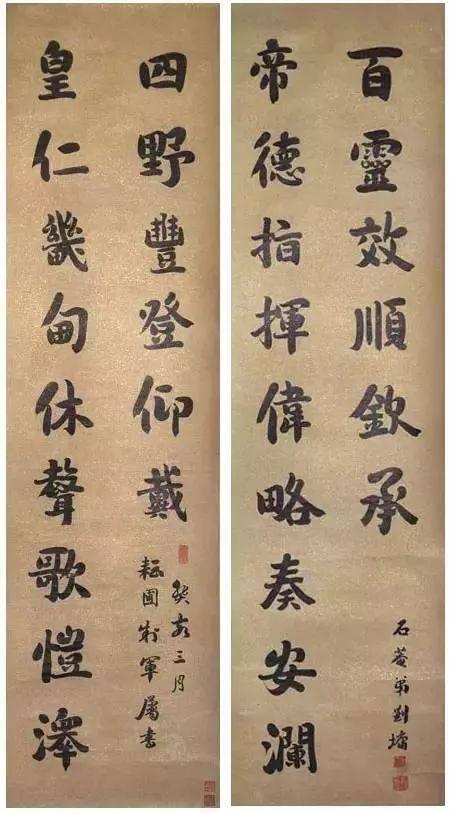 百靈效順欽承
石菴弟劉墉
帝德指揮偉略奏安瀾
四野豐登仰戴
癸亥三月
耘圃制軍屬書
皇仁畿甸休聲歌愷澤